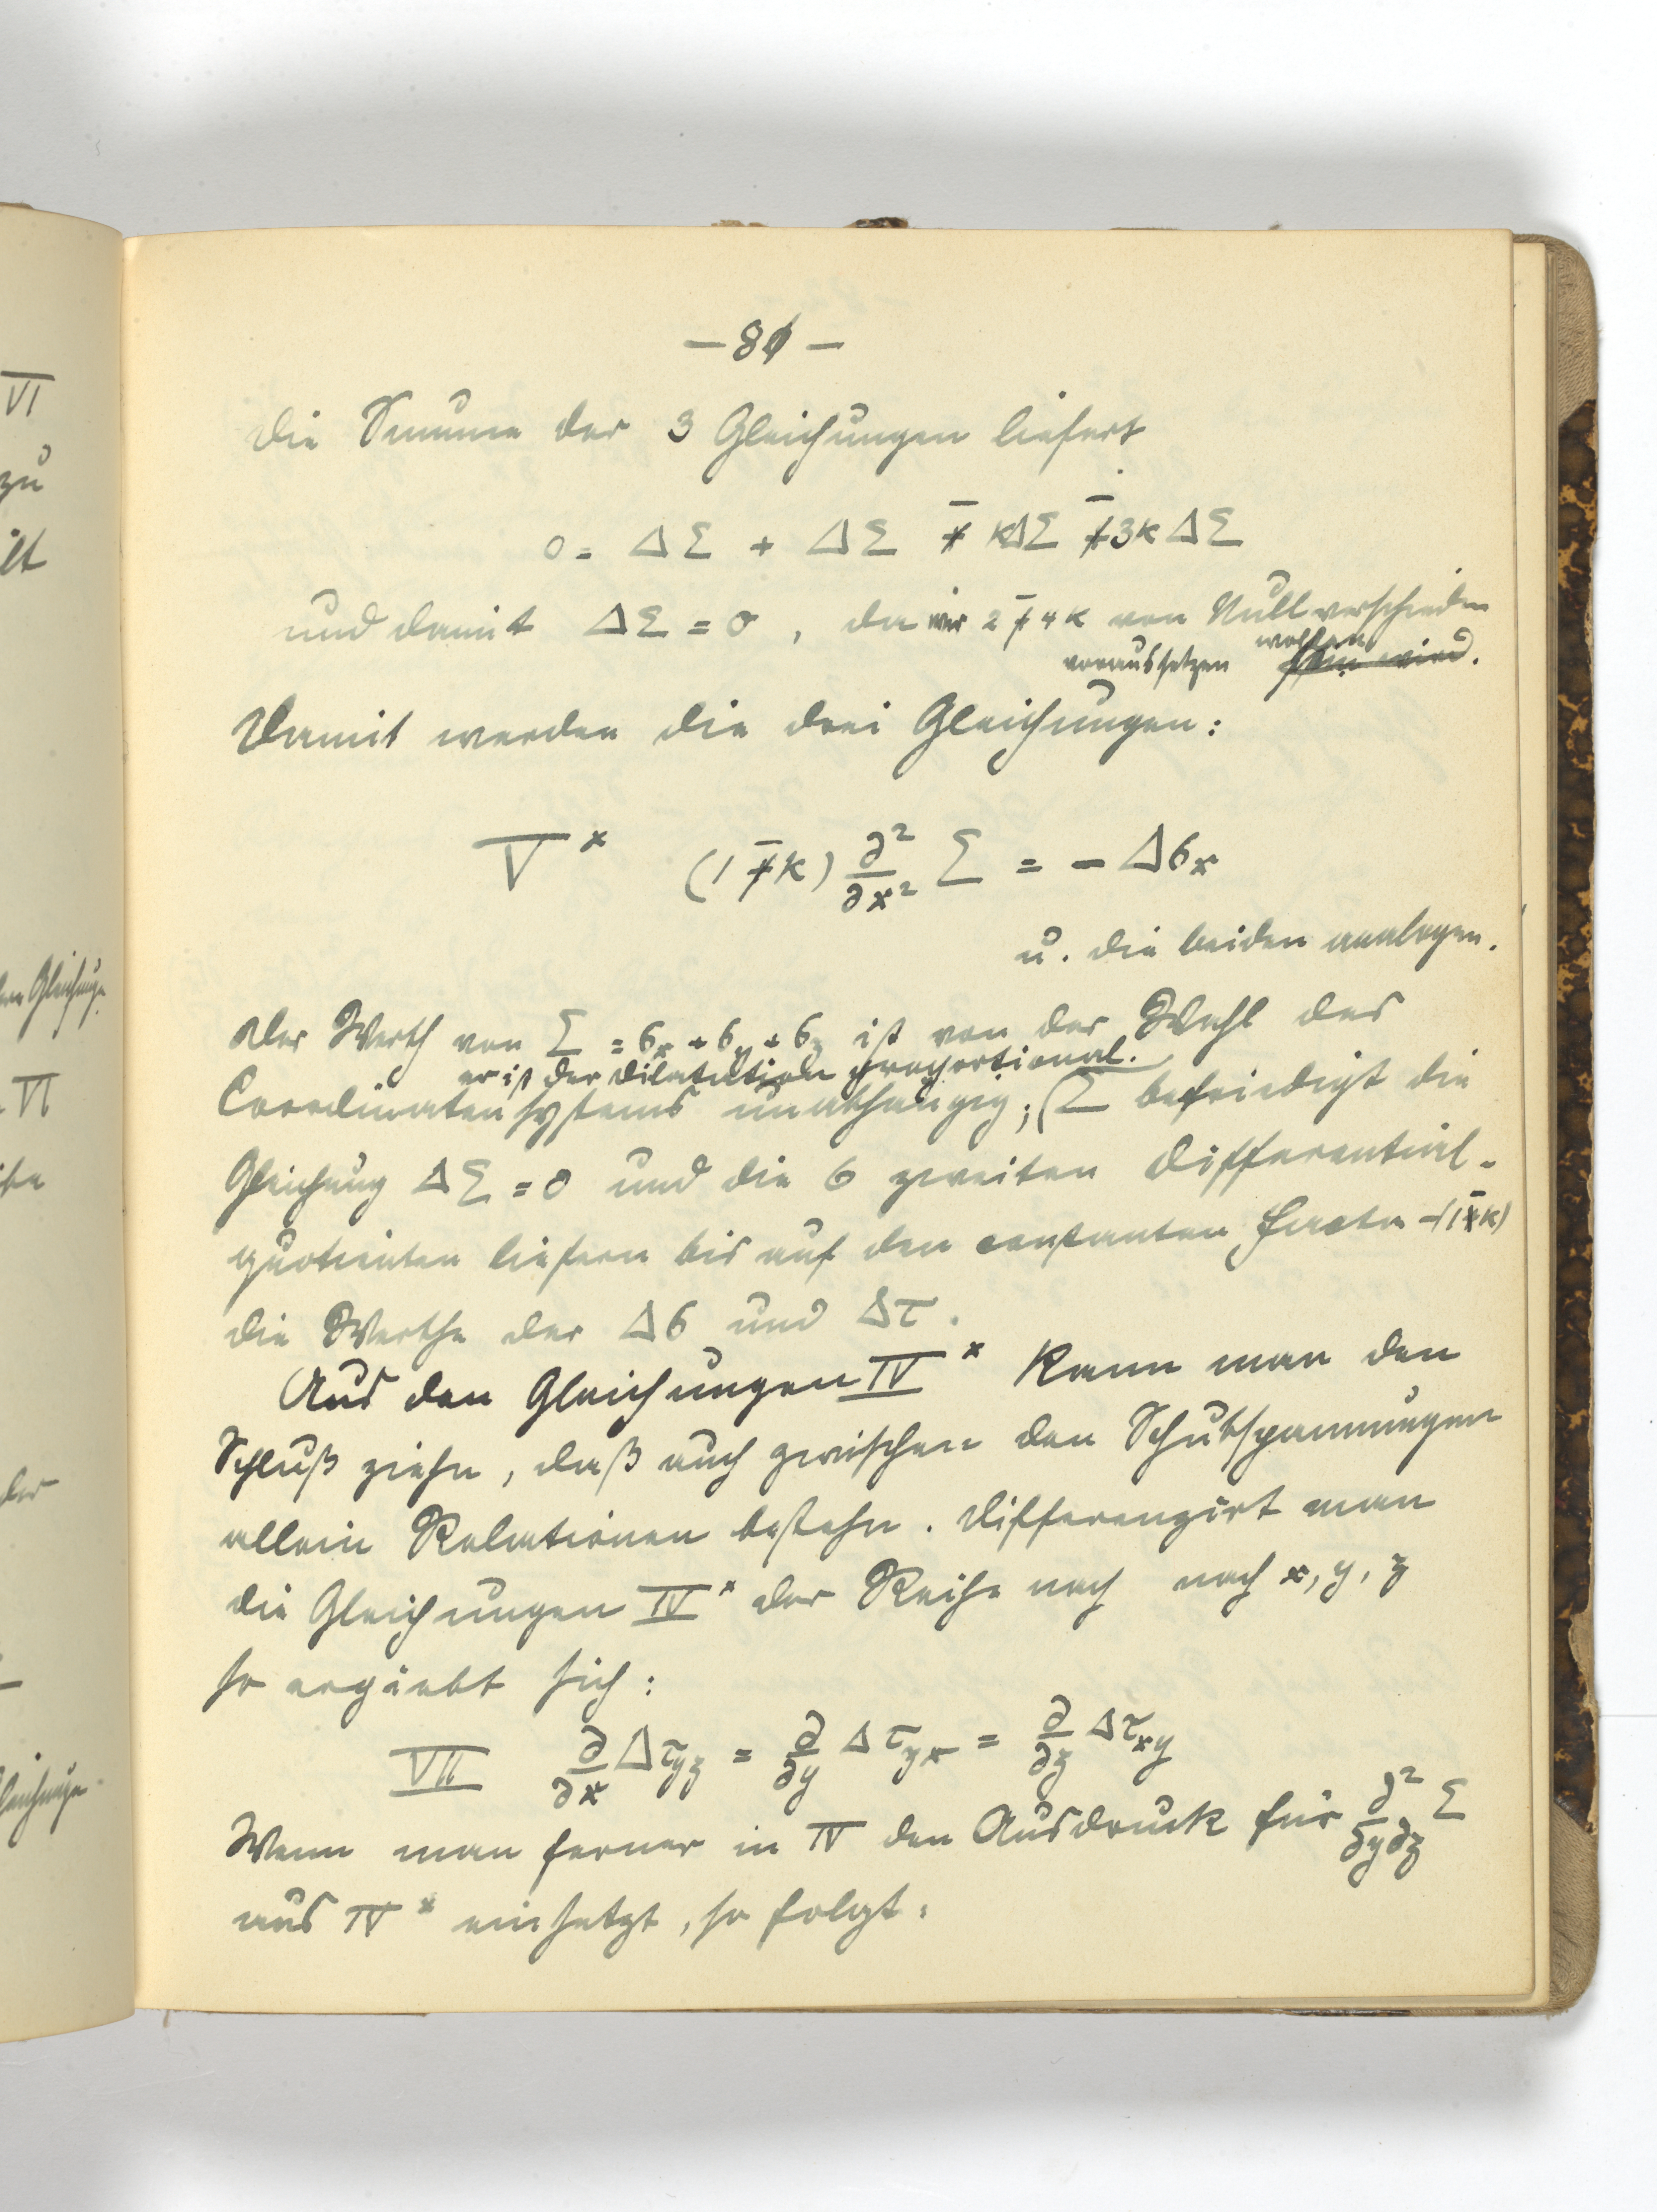 VI
zu
— 80 —
Die Summe der 3 Gleichungen liefert
0 = ΔΣ + ΔΣ - kΔΣ - 3kΔΣ
und damit ΔΣ = 0, da wir 2 - 4k von Null verschieden
voraussetzen wollen.
Damit werden die drei Gleichungen:
V* (1 - k) ∂²/∂x² Σ = - Δσx
u. die beiden analogen.
Der Werth von Σ = σx + σy + σz ist von der Wahl des
er ist der Dilatation proportional.
Coordinatensystems unabhängig; Σ befriedigt die
Gleichung ΔΣ = 0 und die 6 zweiten Differential-
quotienten liefern bis auf den constanten Factor -(1-k)
die Werthe der Δσ und Δτ.
Aus den Gleichungen IV* kann man den
Schluß ziehn, daß auch zwischen den Schubspannungen
allein Relationen bestehn. Differenzirt man
die Gleichungen IV* der Reihe nach nach x, y, z
so ergiebt sich:
VII ∂/∂x Δτyz = ∂/∂y Δτzx = ∂/∂z Δτxy
Wenn man ferner in IV den Ausdruck für ∂²/∂y∂z Σ
aus IV* einsetzt, so folgt: